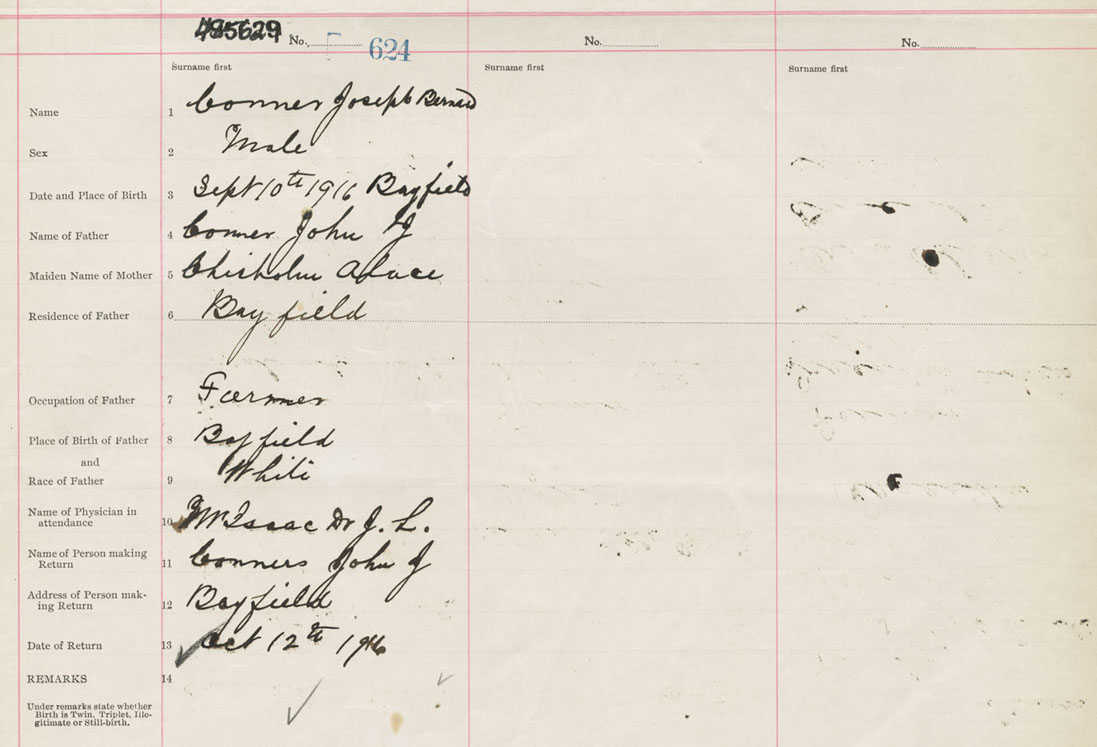 485629 No. 624 No. No.
Surname first Surname first Surname first
Name 1 Conner Joseph Bernard
Sex 2 Male
Date and Place of Birth 3 Sept 10th 1916 Bayfield
Name of Father 4 Conner John J
Maiden Name of Mother 5 Chisholm
Residence of Father 6 Bayfield
Occupation of Father 7 Farmer
Place of Birth of Father 8 Bayfield
and
Race of Father 9 White
Name of Physician in
attendance 10 McIsaac Dr J. L.
Name of Person making
Return 11 Conners John J
Address of Person mak-
ing Return 12 Bayfield
Date of Return 13 Oct 12th 1916
REMARKS 14
Under remarks state whether
Birth is Twin, Triplet, Ille-
gitimate or Still-birth.